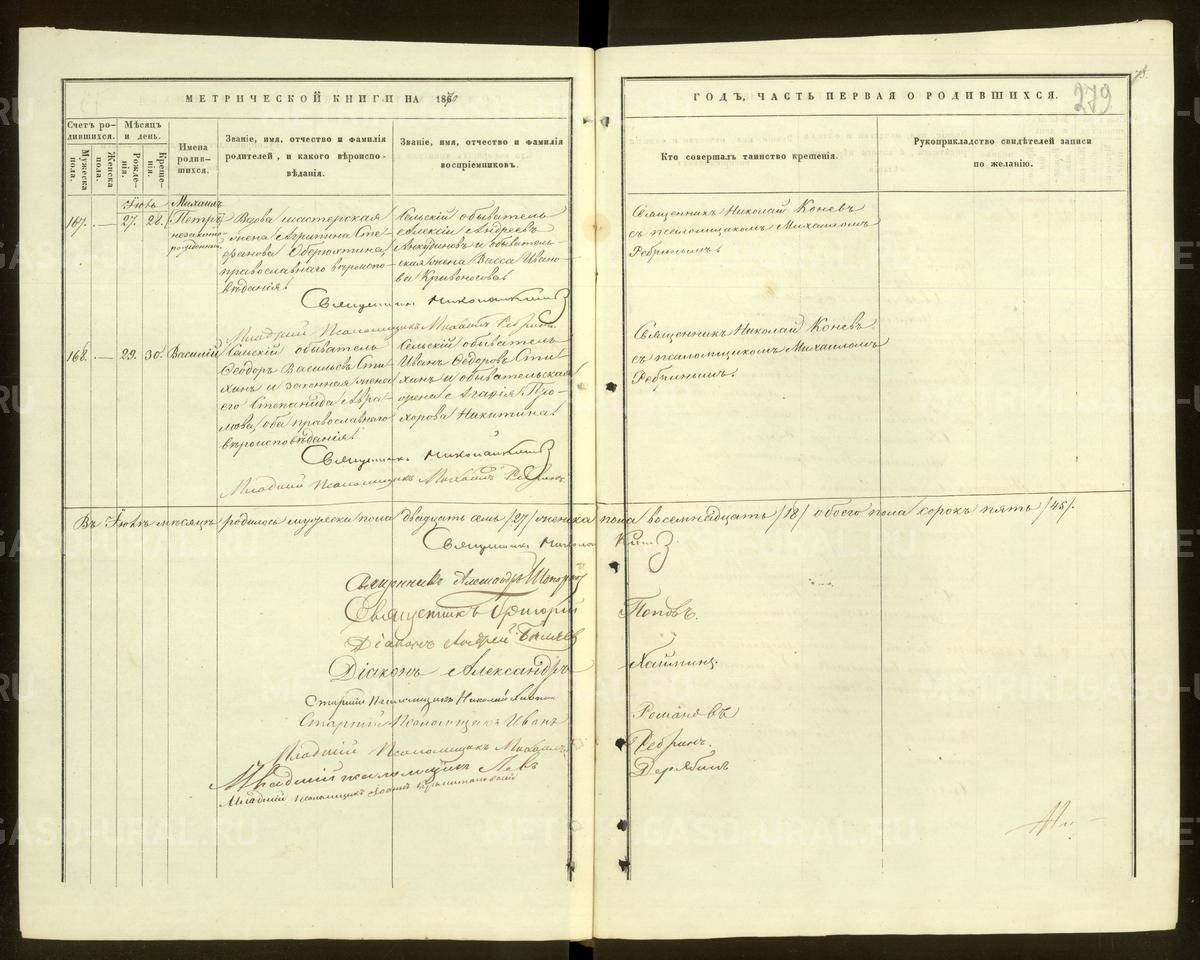 МЕТРИЧЕСКОЙ КНИГИ НА 1870
ГОДЪ, ЧАСТЬ ПЕРВАЯ О РОДИВШИХСЯ.
279
Счетъ ро-
дившихся.
Мужеска
пола.
Женска
пола.
Мѣсяцъ
и день.
Рожде-
нія.
Креще-
нія.
Имена
родив-
шихся.
Званіе, имя, отчество и фамилія
родителей, и какого вѣроиспо-
вѣданія.
Званіе, имя, отчество и фамилія
воспріемниковъ.
Кто совершалъ таинство крещенія.
Рукоприкладство свидѣтелей записи
по желанію.
Іюнь Михаилъ
167. — 27. 28. Петръ
незаконно-
рожденный.
Вдова мастерская
жена Агрипина Сте-
фанова Оберюхтина,
православнаго вѣроиспо-
вѣданія.
Сельскій обыватель
Алексѣй Андреевъ
Анкудиновъ и обыватель-
ская жена Васса Ивано-
ва Кривоногова.
Священникъ Николай Коневъ
съ псаломщикомъ Михаиломъ
Ребринымъ.
Священникъ Николай
Младшій Псаломщикъ Михаилъ Ребринъ.
168. — 29. 30. Василій
Сельскій обыватель
Ѳеодоръ Васильевъ Сти-
хинъ и законная жена
его Степанида Авра-
мова, оба православнаго
вѣроисповѣданія.
Сельскій обыватель
Иванъ Ѳедоровъ Сти-
хинъ и обывательская
жена Агафія Про-
хорова Никитина.
Священникъ Николай Коневъ
съ псаломщикомъ Михаиломъ
Ребринымъ.
Священникъ Николай
Младшій Псаломщикъ Михаилъ Ребринъ.
Въ Іюнѣ мѣсяцѣ родилось мужеска пола двадцать семь /27/ женска пола восемнадцать /18/ обоего пола сорокъ пять /45/.
Священникъ Николай
Священникъ Александръ
Священникъ Григорій Поповъ.
Діаконъ Андрей
Діаконъ Александръ
Старшій Псаломщикъ Николай
Старшій Псаломщикъ Иванъ Романовъ
Младшій Псаломщикъ Михаилъ Ребринъ.
Младшій псаломщикъ Левъ Дерябинъ
Младшій псаломщикъ
METRIKI.GASO-URAL.RU